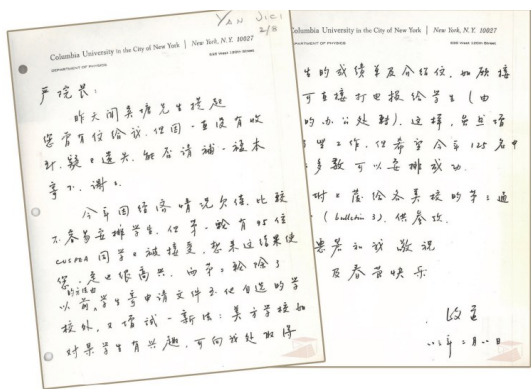 YAN JICI
2/8
Columbia University in the City of New York | New York, N.Y. 10027
DEPARTMENT OF PHYSICS
538 West 120th Street
严院长:
昨天闻吴塘先生提起
您曾有位给我,但因一直没有收
到,疑已遗失,能否请补一複本
寄下,谢谢。
今年因经济情况欠佳,比较
不容易安排学生,但第一轮有95位
CUSPEA同学已被接受,想来这结果使
您一定也很高兴。而第二轮除了
以前的方法由学生寄申请文件予他自选的学
校外,又谙试一新法:美方学校如
对某学生有兴趣,可向我处取得
Columbia University in the City of New York | New York, N.Y. 10027
DEPARTMENT OF PHYSICS
538 West 120th Street
生的成绩单及介绍信,如愿接
可直接打电报给学生(由
的办公处转)。这样,虽然增
工作,但希望今年125名中
多数可以安排成功。
附上发给各美校的第二通
(bulletin 3),供参考。
惠君和我敬祝
及春节快乐
政道
八三年二月八日